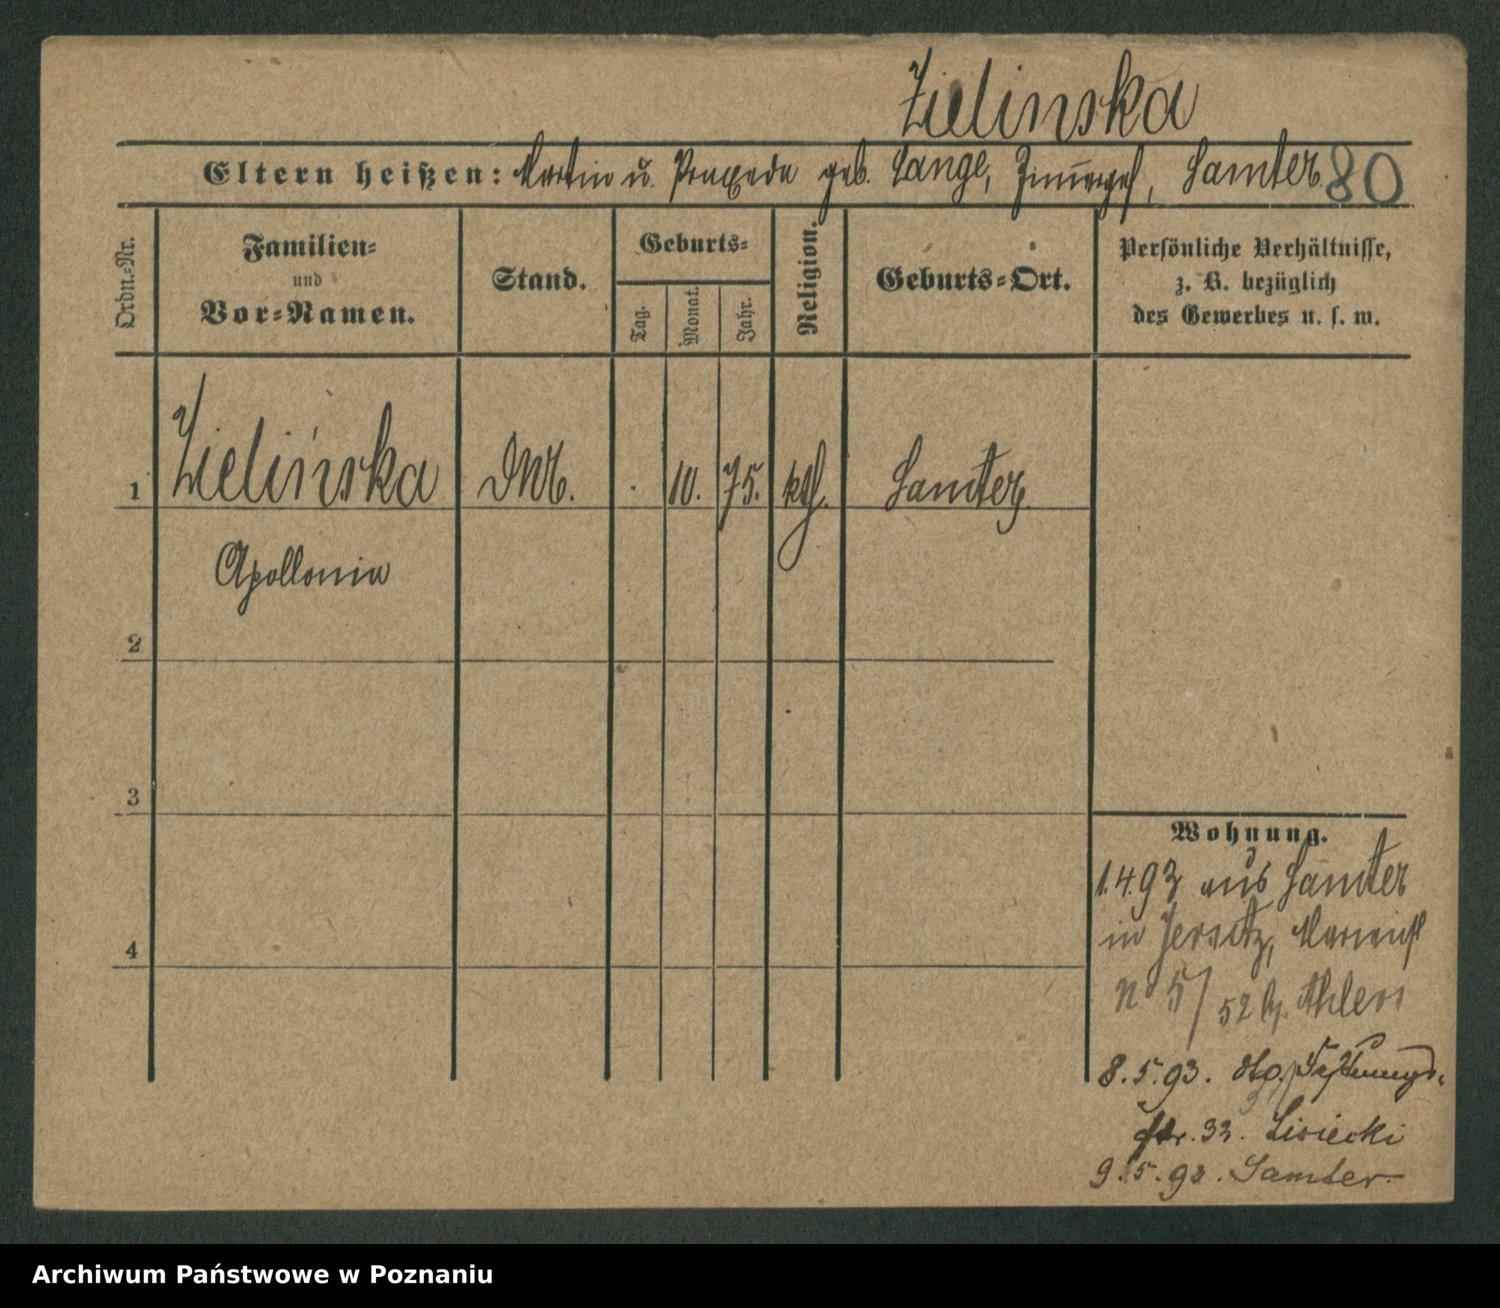 Zielinska
Eltern heißen: Martin u. Praxeda geb. Lange, Samter 80
Ordn.-Nr.
Familien-
und
Vor-Namen.
Stand.
Geburts-
Tag.
Monat.
Jahr.
Religion.
Geburts-Ort.
Persönliche Verhältnisse,
z. B. bezüglich
des Gewerbes u. s. w.
1 Zielińska . 10. 75. kth. Samter.
Apollonia
2
3
4
Wohnung.
1.4.93 aus Samter
in Jersitz,
No 5/ 52 Ahlers
8.5.93.
str. 32. Lisiecki
9.5.93. Samter.
Archiwum Państwowe w Poznaniu